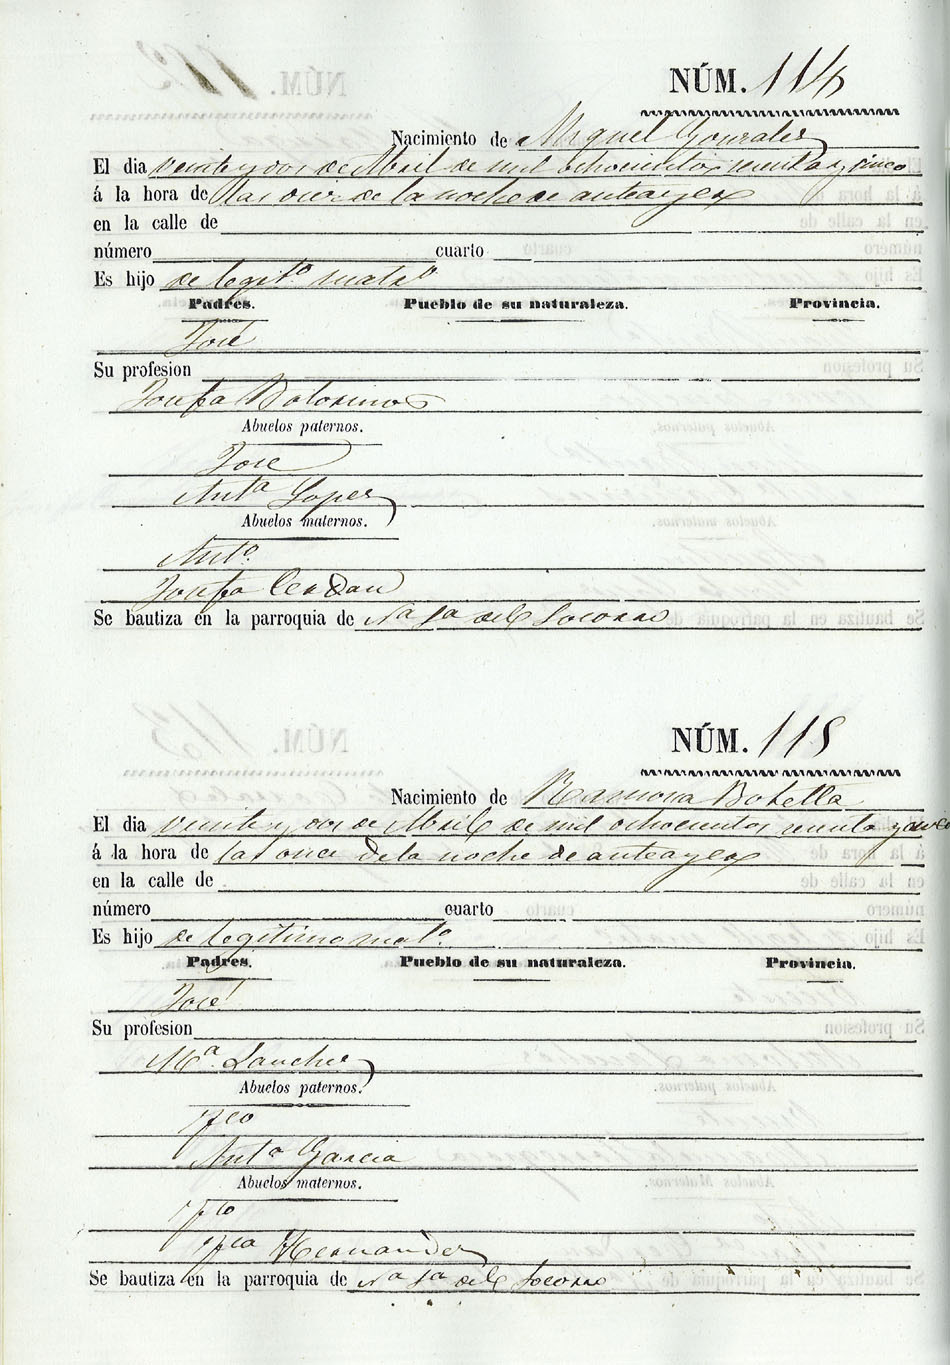 NÚM. 114
Nacimiento de Miguel Gonzalez
El dia veinte y dos de Abril de mil ochocientos sesenta y cinco
á la hora de las diez de la noche de anteayer
en la calle de
número cuarto
Es hijo de legit.º matr.º
Padres. Pueblo de su naturaleza. Provincia.
José
Su profesion
Josefa Palomino
Abuelos paternos.
Jose
Ant.ª Lopez
Abuelos maternos.
Ant.º
Josefa Cerdan
Se bautiza en la parroquia de N.ª S.ª del Socorro
NÚM. 115
Nacimiento de Ramona Botella
El dia veinte y dos de Abril de mil ochocientos sesenta y cinco
á la hora de las once de la noche de anteayer
en la calle de
número cuarto
Es hijo de legitimo mat.º
Padres. Pueblo de su naturaleza. Provincia.
José
Su profesion
M.ª Sanchez
Abuelos paternos.
Fco
Ant.ª Garcia
Abuelos maternos.
Fco
Fca Hernandez
Se bautiza en la parroquia de N.ª S.ª del Socorro